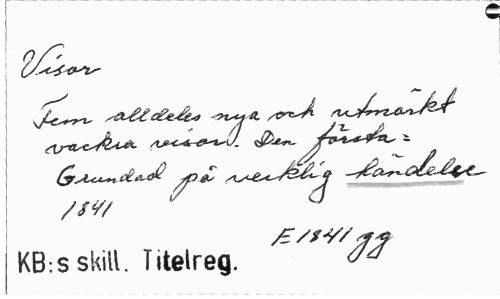 Visor
Fem alldeles nya och utmärkt
vackra visor. Den första =
Grundad på verklig händelse
1841
E 1841 gg
KB:s skill. Titelreg.